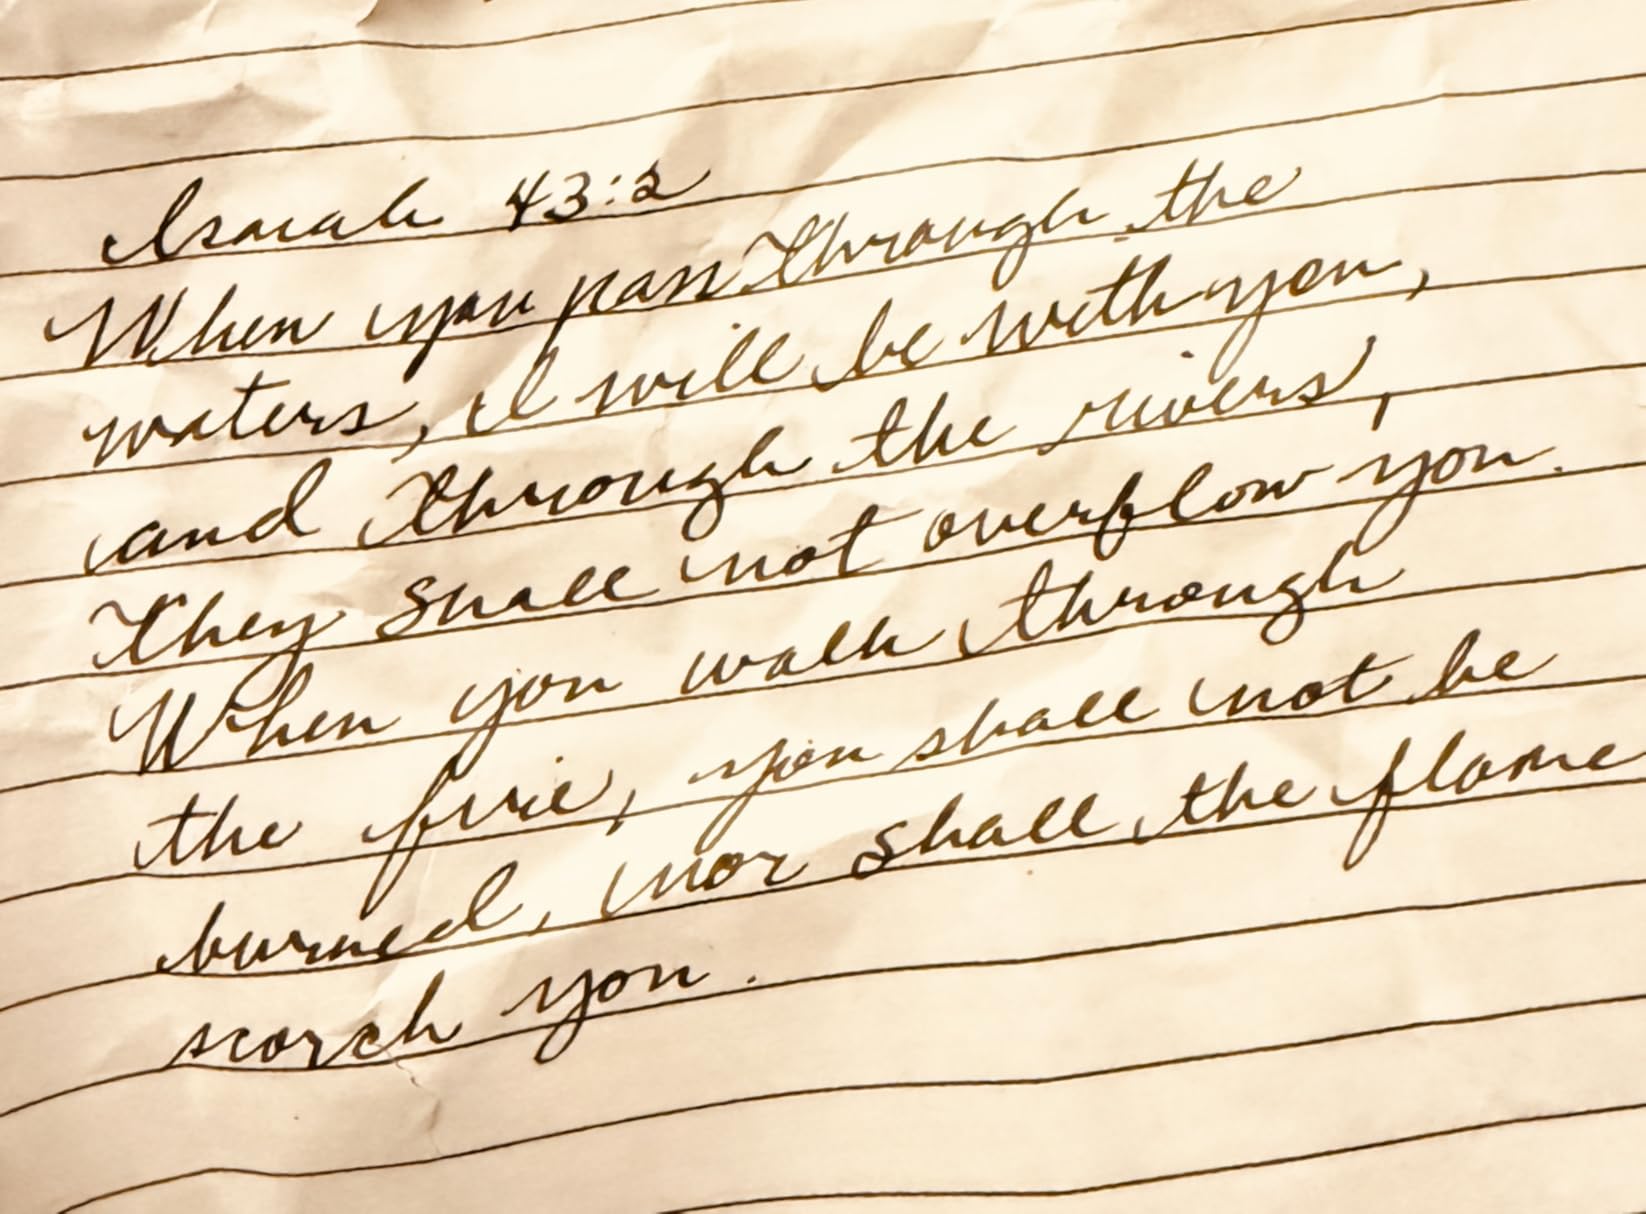 Isaiah 43:2
When you pass through the
waters, I will be with you,
and through the rivers,
They shall not overflow you.
When you walk through
the fire, you shall not be
burned, nor shall the flame
scorch you.